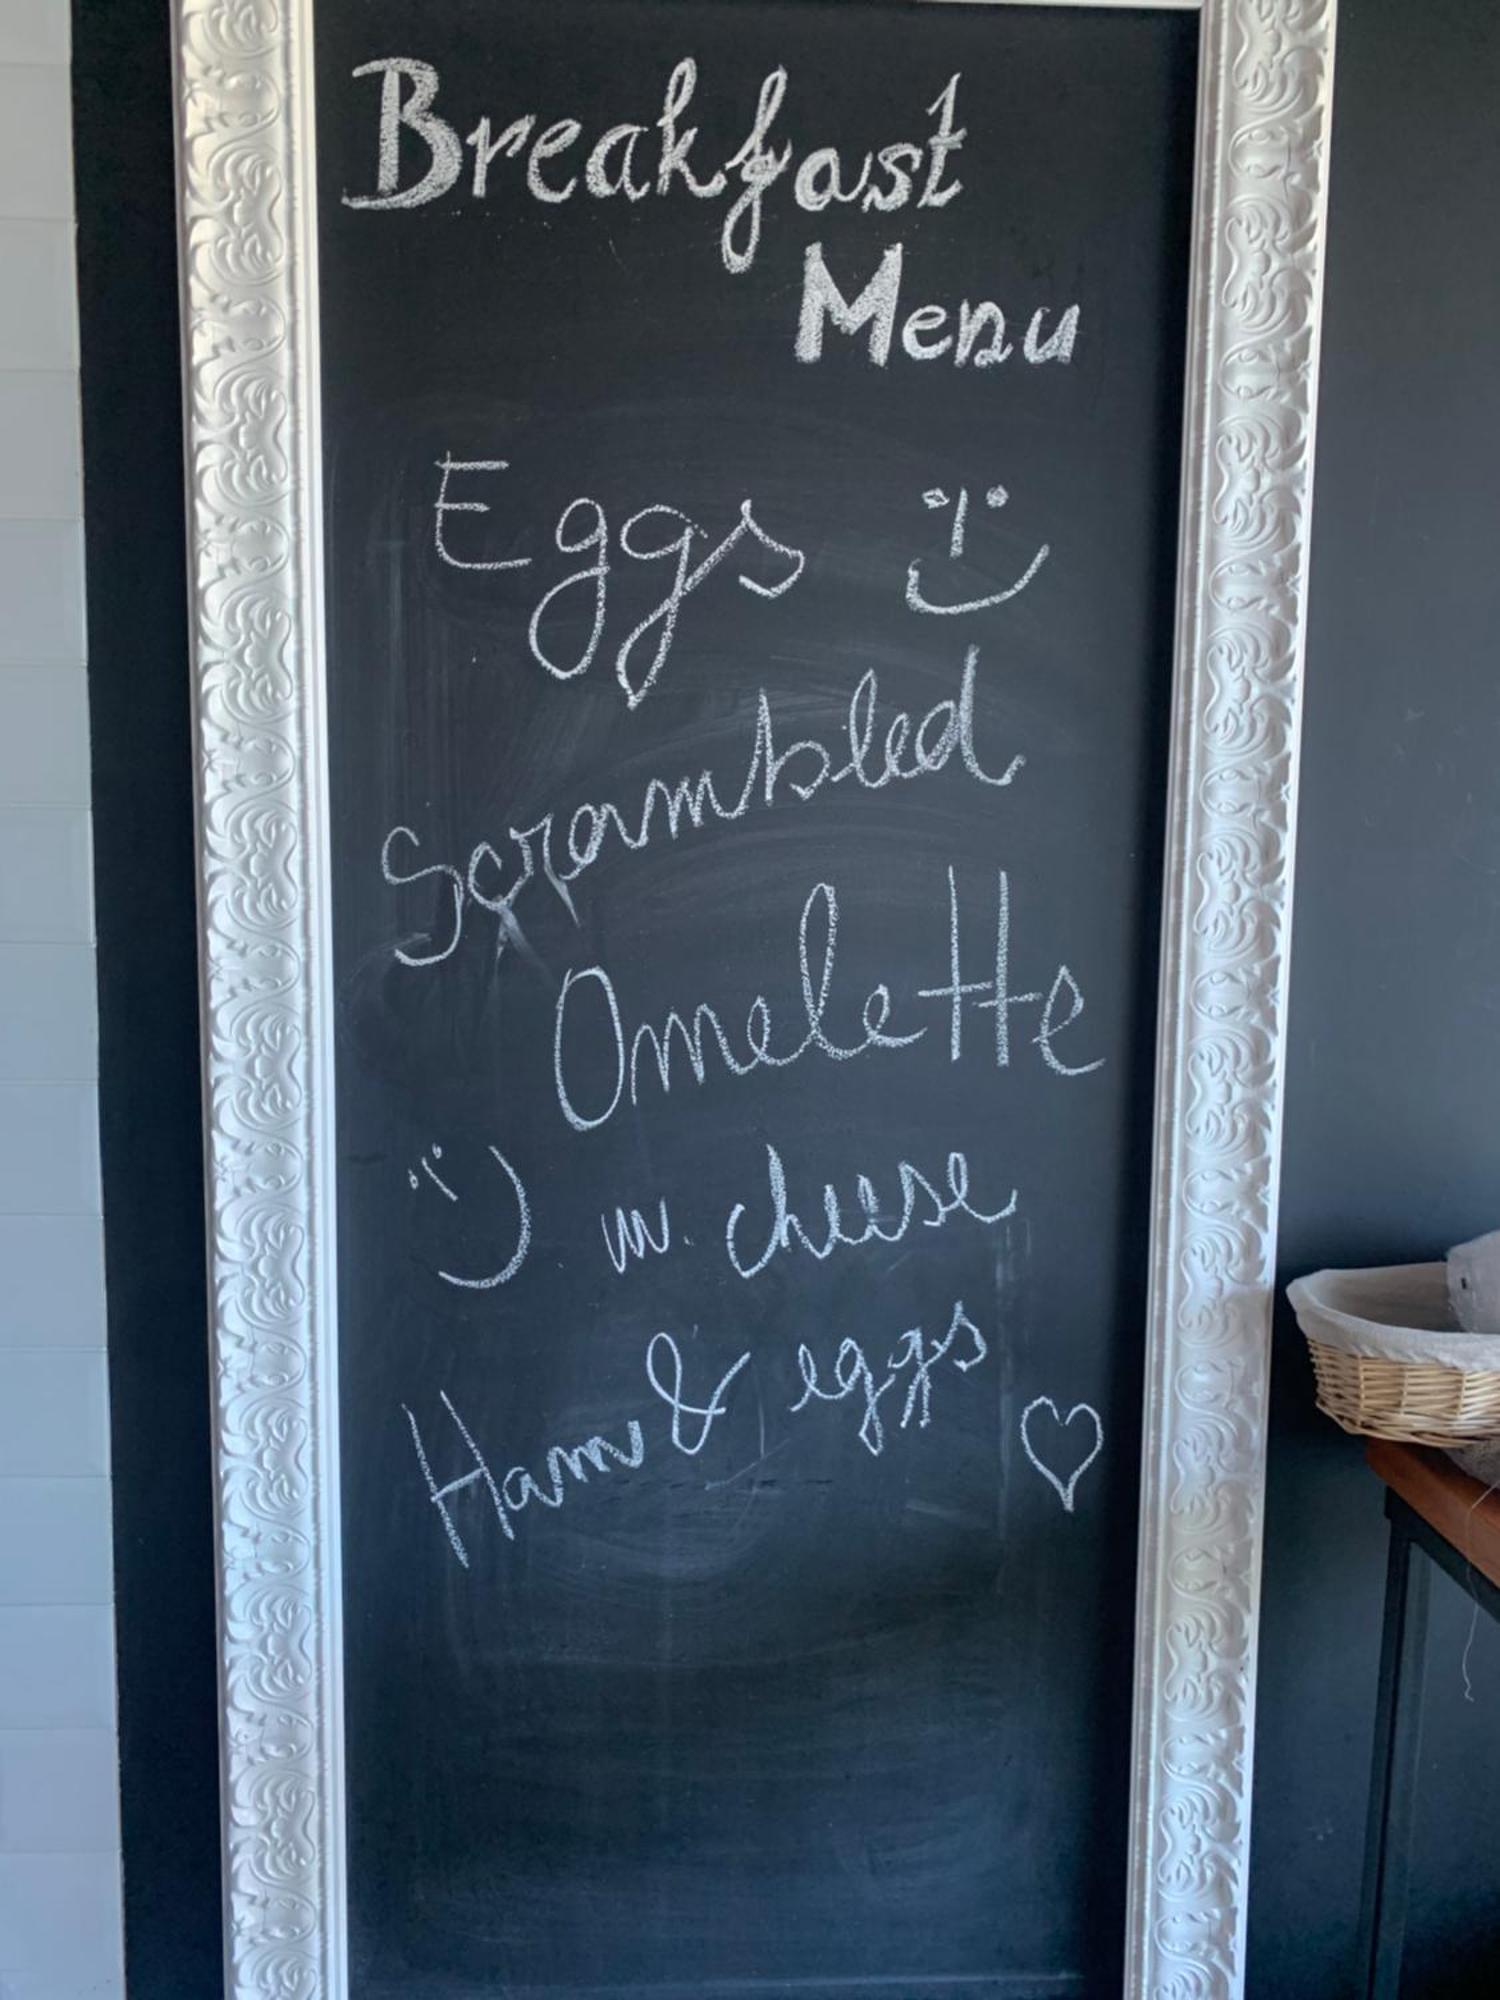 Breakfast
Menu
Eggs
Scrambled
Omelette
w. cheese
Ham & eggs